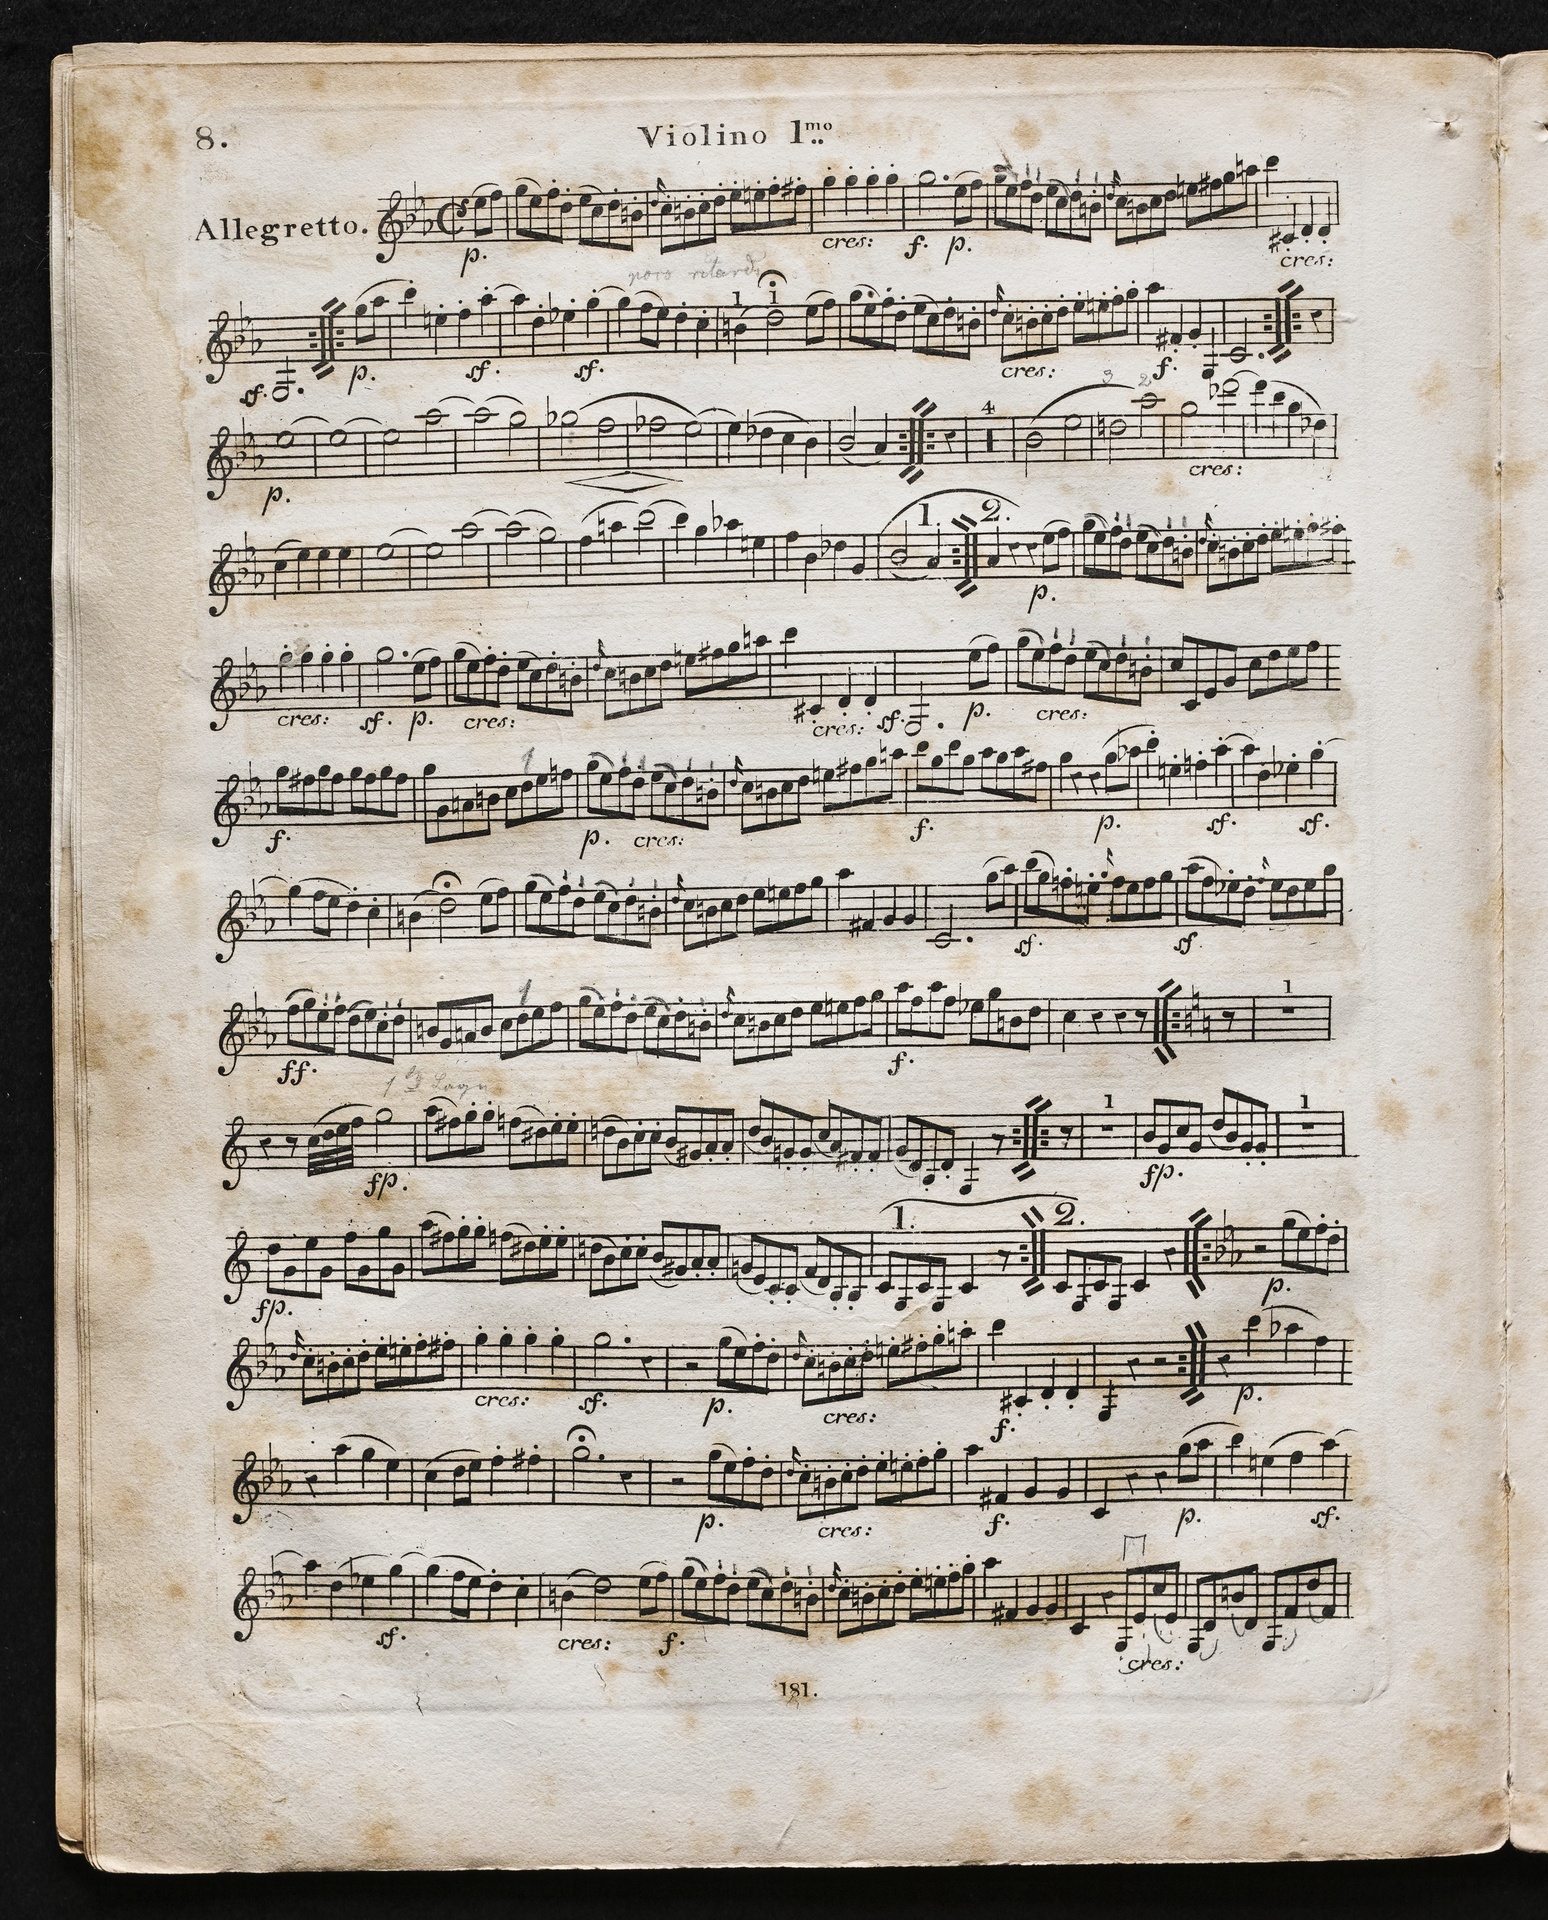 8.
Violino 1mo
Allegretto.
p. cres: f. p. cres:
poco ritard
1 1
sf. p. sf. sf. cres: f.
3 2
4
p. cres:
1. 2.
p.
cres: sf. p. cres: cres: sf. p. cres:
1
f. p. cres: f. p. sf. sf.
sf. sf.
1 1
ff. f.
1 1
fp. fp.
1. 2.
fp. p.
cres: sf. p. cres: f. p.
p. cres: f. p. sf.
sf. cres: f. cres:
181.